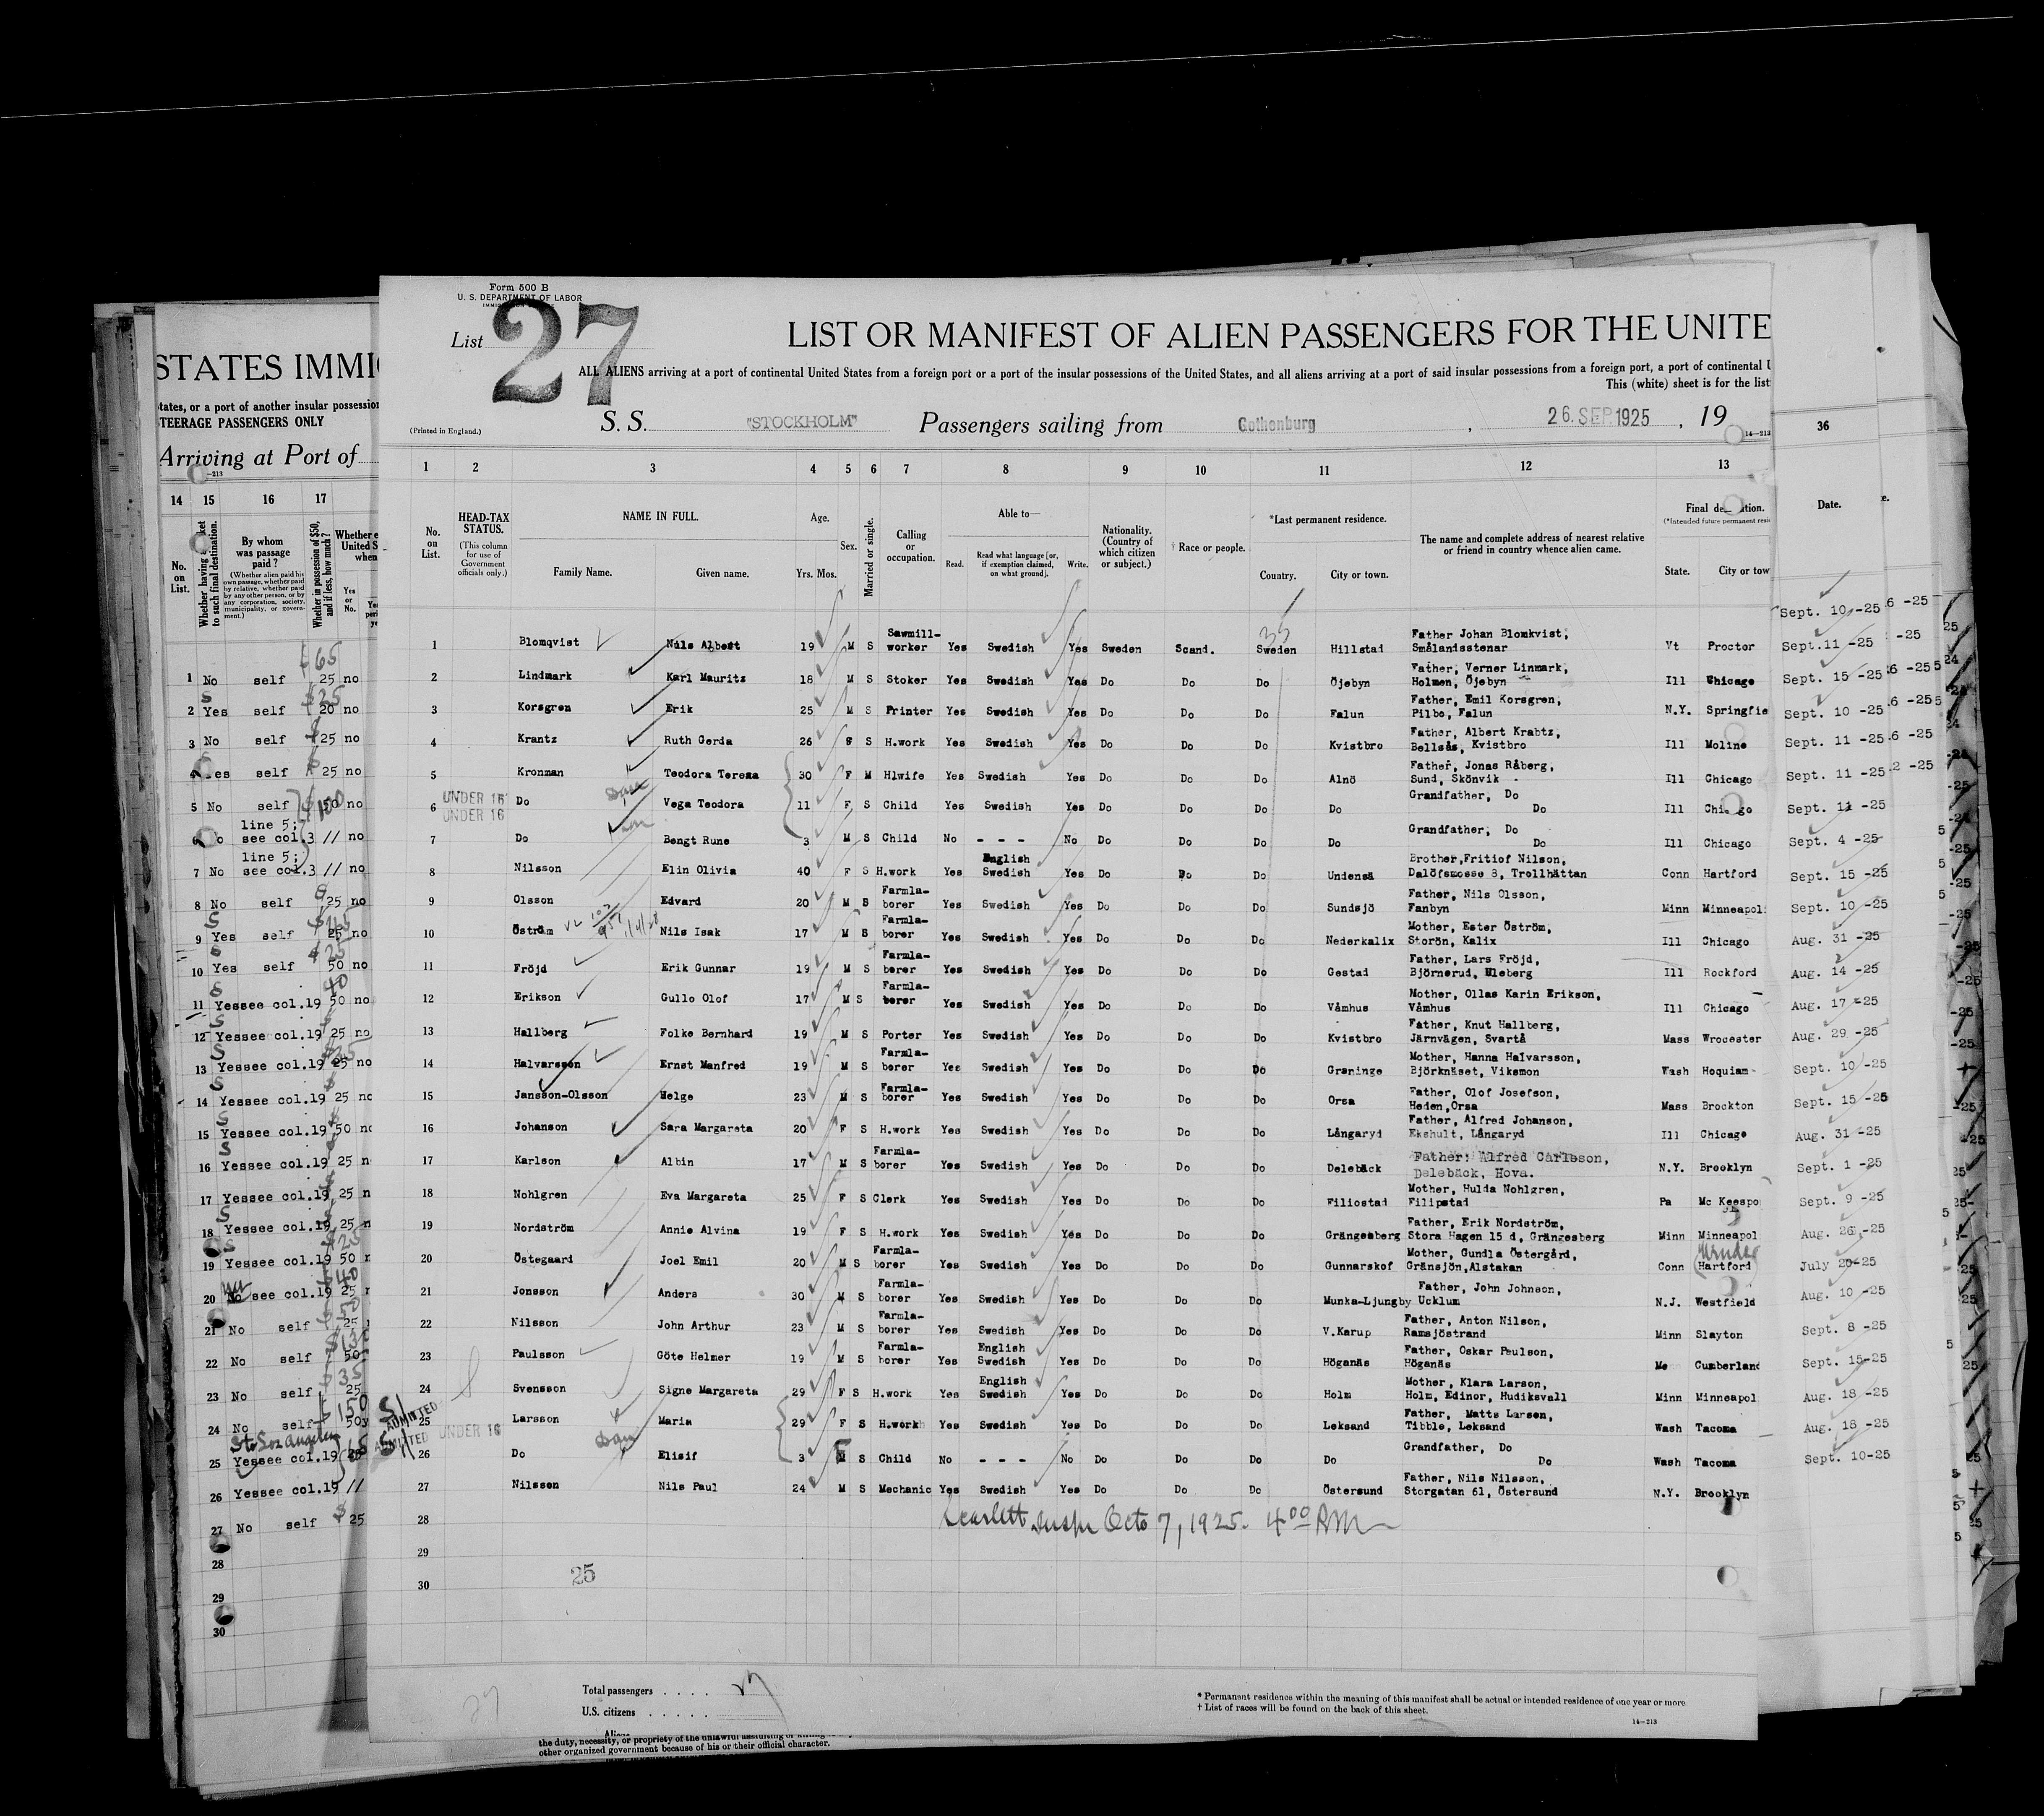 Form 500 B
U. S. DEPARTMENT OF LABOR
List 27
LIST OR MANIFEST OF ALIEN PASSENGERS FOR THE UNITE
ALL ALIENS arriving at a port of continental United States from a foreign port or a port of the insular possessions of the United States, and all aliens arriving at a port of said insular possessions from a foreign port, a port of continental U
This (white) sheet is for the list
(Printed in England.)
S. S. "STOCKHOLM" Passengers sailing from Gothenburg, 26. SEP. 1925, 19
14—213
1 2 3 4 5 6 7 8 9 10 11 12 13
No. on List.
HEAD-TAX STATUS.
(This column for use of Government officials only.)
NAME IN FULL.
Family Name. Given name.
Age.
Yrs. Mos.
Sex.
Married or single.
Calling or occupation.
Able to—
Read. Read what language [or, if exemption claimed, on what ground]. Write.
Nationality. (Country of which citizen or subject.)
† Race or people.
*Last permanent residence.
Country. City or town.
The name and complete address of nearest relative or friend in country whence alien came.
Final
(*Intended future permanent resi
State. City or tow
1 Blomqvist Nils Albert 19 M S Sawmill-worker Yes Swedish Yes Sweden Scand. Sweden Hillstad Father Johan Blomkvist, Smålandsstenar Vt Proctor
2 Lindmark Karl Mauritz 18 M S Stoker Yes Swedish Yes Do Do Do Öjebyn Father, Verner Linmark, Holmen, Öjebyn Ill Chicago
3 Korsgren Erik 25 M S Printer Yes Swedish Yes Do Do Do Falun Father, Emil Korsgren, Pilbo, Falun N.Y. Springfie
4 Krantz Ruth Gerda 26 S H.work Yes Swedish Yes Do Do Do Kvistbro Father, Albert Krabtz, Bellsås, Kvistbro Ill Moline
5 Kronman Teodora Teresa 30 F M H!wife Yes Swedish Yes Do Do Do Alnö Father, Jonas Råberg, Sund, Skönvik Ill Chicago
6 UNDER 16 Do Vega Teodora 11 F S Child Yes Swedish Yes Do Do Do Do Grandfather, Do Do Ill Chicago
7 UNDER 16 Do Bengt Rune 3 M S Child No - - - No Do Do Do Do Grandfather, Do Do Ill Chicago
8 Nilsson Elin Olivia 40 F S H.work Yes English Swedish Yes Do Do Do Undenså Brother, Fritiof Nilson, Dalöfsmosse 8, Trollhättan Conn Hartford
9 Olsson Edvard 20 M S Farmla-borer Yes Swedish Yes Do Do Do Sundsjö Father, Nils Olsson, Fanbyn Minn Minneapol
10 Öström Nils Isak 17 M S Farmla-borer Yes Swedish Yes Do Do Do Nederkalix Mother, Ester Öström, Storön, Kalix Ill Chicago
11 Fröjd Erik Gunnar 19 M S Farmla-borer Yes Swedish Yes Do Do Do Gestad Father, Lars Fröjd, Björnerud, Eleberg Ill Rockford
12 Erikson Gullo Olof 17 M S Farmla-borer Yes Swedish Yes Do Do Do Våmhus Mother, Ollas Karin Erikson, Våmhus Ill Chicago
13 Hallberg Folke Bernhard 19 M S Porter Yes Swedish Yes Do Do Do Kvistbro Father, Knut Hallberg, Järnvägen, Svartå Mass Wrocester
14 Halvarsson Ernst Manfred 19 M S Farmla-borer Yes Swedish Yes Do Do Do Graninge Mother, Hanna Halvarsson, Björknäset, Viksmon Wash Hoquiam
15 Jansson-Olsson Helge 23 M S Farmla-borer Yes Swedish Yes Do Do Do Orsa Father, Olof Josefson, Heden,Orsa Mass Brockton
16 Johanson Sara Margareta 20 F S H.work Yes Swedish Yes Do Do Do Långaryd Father, Alfred Johanson, Ekshult, Långaryd Ill Chicago
17 Karlson Albin 17 M S Farmla-borer Yes Swedish Yes Do Do Do Delebäck Father: Alfred Carlsson, Delebäck, Hova. N.Y. Brooklyn
18 Nohlgren Eva Margareta 25 F S Clerk Yes Swedish Yes Do Do Do Filiostad Mother, Hulda Nohlgren, Filipstad Pa Mc Keespo
19 Nordström Annie Alvina 19 F S H.work Yes Swedish Yes Do Do Do Grängesberg Father, Erik Nordström, Stora Hagen 15 d, Grängesberg Minn Minneapol
20 Östegaard Joel Emil 20 M S Farmla-borer Yes Swedish Yes Do Do Do Gunnarskof Mother, Gundla Östergård, Gränsjön,Alstakan Conn Hartford
21 Jonsson Anders 30 M S Farmla-borer Yes Swedish Yes Do Do Do Munka-Ljungby Father, John Johnson, Ucklum N.J. Westfield
22 Nilsson John Arthur 23 M S Farmla-borer Yes Swedish Yes Do Do Do V.Karup Father, Anton Nilson, Ramsjöstrand Minn Slayton
23 Paulsson Göte Helmer 19 M S Farmla-borer Yes English Swedish Yes Do Do Do Höganäs Father, Oskar Paulson, Höganäs Me Cumberland
24 Svensson Signe Margareta 29 F S H.work Yes English Swedish Yes Do Do Do Holm Mother, Klara Larson, Holm, Edinor, Hudiksvall Minn Minneapol
25 ADMITTED Larsson Maria 29 F S H.work Yes Swedish Yes Do Do Do Leksand Father, Matts Larsen, Tibble, Leksand Wash Tacoma
26 ADMITTED UNDER 16 Do Elisif 3 M S Child No - - - No Do Do Do Do Grandfather, Do Do Wash Tacoma
27 Nilsson Nils Paul 24 M S Mechanic Yes Swedish Yes Do Do Do Östersund Father, Nils Nilsson, Storgatan 61, Östersund N.Y. Brooklyn
28 Scarlett Inspr Octo 7, 1925. 4 00 PM
29
30
25
27
Total passengers . . . . 27
U.S. citizens . . . . .
* Permanent residence within the meaning of this manifest shall be actual or intended residence of one year or more.
† List of races will be found on the back of this sheet.
14—213
the duty, necessity, or propriety of the unlawful assaulting or killing
other organized government because of his or their official character.
STATES IMMI
tates, or a port of another insular possession
TEERAGE PASSENGERS ONLY
Arriving at Port of
14 15 16 17
No. on List.
Whether having a ticket to such final destination.
By whom was passage paid?
(Whether alien paid his own passage, whether paid by relative, whether paid by any other person, or by any corporation, society, municipality, or government.)
Whether in possession of $50, and if less, how much?
Yes or No.
1 No self 25 no $65
2 Yes self 20 no $25
3 No self 25 no
4 Yes self 25 no
5 No self 50 no
6 No line 5; see col.3 // no
7 No line 5; see col.3 // no
8 No self 25 no
9 Yes self 25 no
10 Yes self 50 no
11 Yes see col.19 50 no
12 Yes see col.19 25 no
13 Yes see col.19 25 no
14 Yes see col.19 25 no
15 Yes see col.19 50 no
16 Yes see col.19 25 n
17 Yes see col.19 25 n
18 Yes see col.19 25 n
19 Yes see col.19 50 n
20 No see col.19 25
21 No self 25
22 No self 50
23 No self 25
24 No self 50
25 Yes see col.19 25
26 Yes see col.19 //
27 No self 25
28
29
30
36
Date.
Sept. 10 -25
Sept.11 -25
Sept. 15 -25
Sept. 10 -25
Sept. 11 -25
Sept. 11 -25
Sept. 11 -25
Sept. 4 -25
Sept. 15 -25
Sept. 10 -25
Aug. 31 -25
Aug. 14 -25
Aug. 17 -25
Aug. 29 -25
Sept. 10 -25
Sept. 15 -25
Aug. 31 -25
Sept. 1 -25
Sept. 9 -25
Aug. 26 -25
July 20-25
Aug. 10 -25
Sept. 8 -25
Sept. 15-25
Aug. 18 -25
Aug. 18 -25
Sept. 10-25